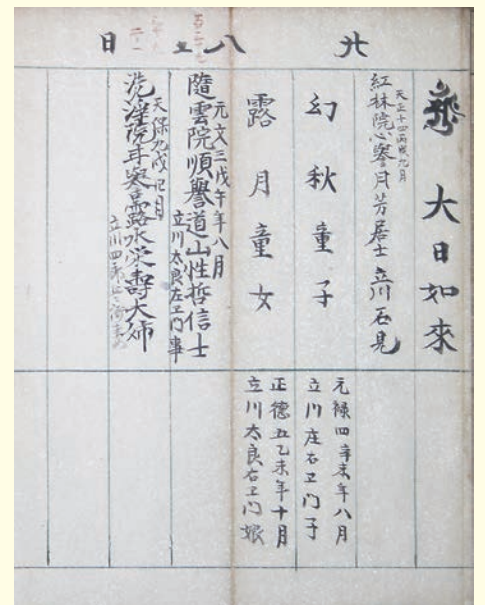 廿八日
大日如來
天正十四丙戌九月
紅林院心譽月芳居士 立川石見
幻秋童子
元禄四辛未年八月
立川庄右ヱ門子
露月童女
正德五乙未年十月
立川太良右ヱ門娘
元文三戊午年八月
隨雲院順譽道山性哲信士
立川太良左ヱ門事
天保九戌 月
洗淫院 大姉
立川四